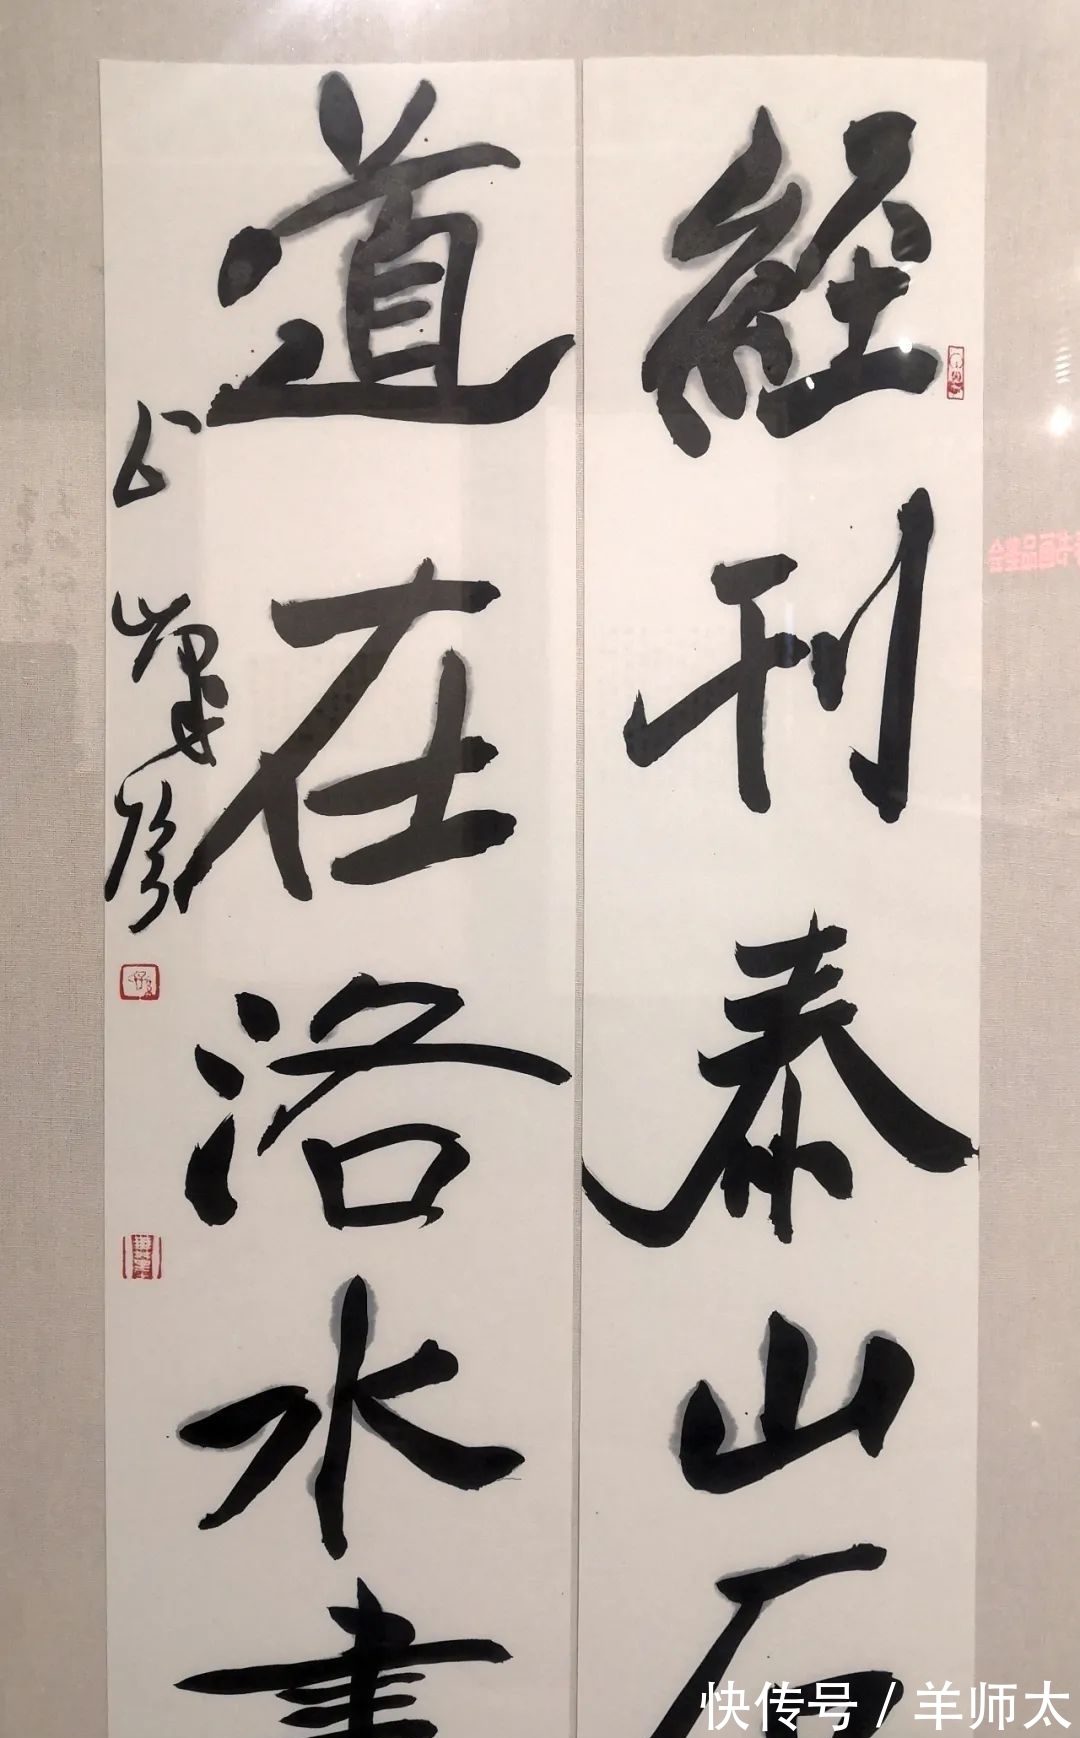 經刊泰山石
道在洛水書
快传号 / 羊师太